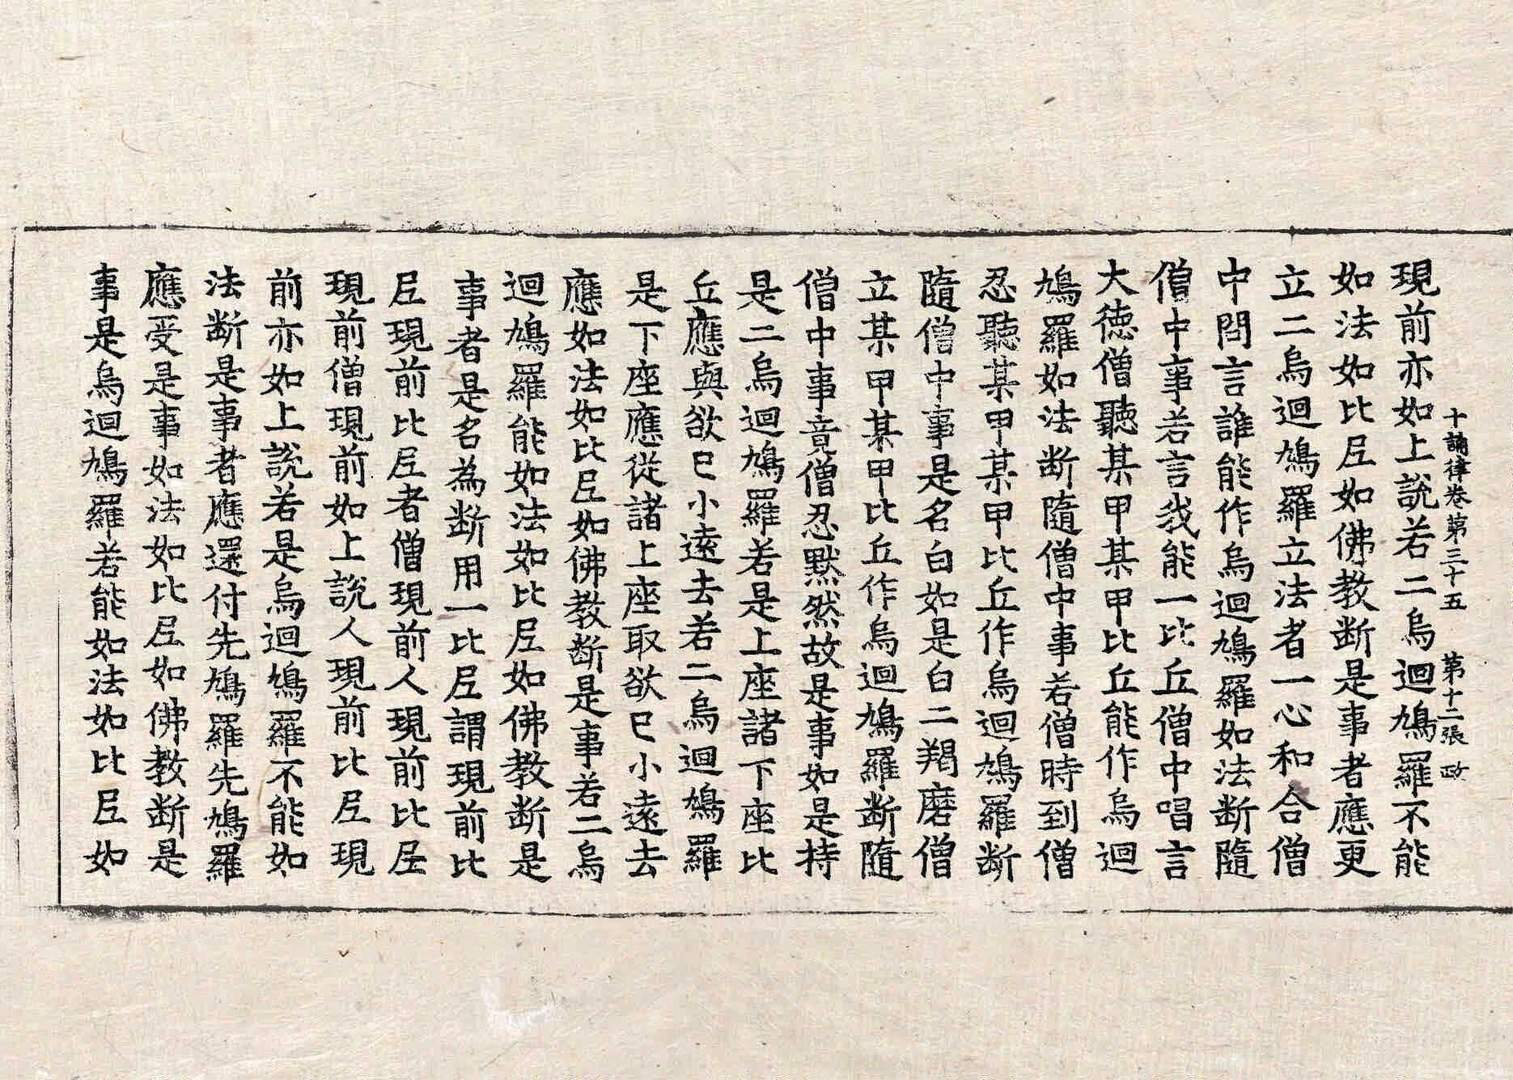 十誦律卷第三十五 第十二張 政
現前亦如上說若二烏迴鳩羅不能
如法如比𡰱如佛教断是事者應更
立二烏迴鳩羅立法者一心和合僧
中問言誰能作烏迴鳩羅如法断隨
僧中事若言我能一比丘僧中唱言
大徳僧聽某甲某甲比丘能作烏迴
鳩羅如法断隨僧中事若僧時到僧
忍聽某甲某甲比丘作烏迴鳩羅断
隨僧中事是名白如是白二羯磨僧
立某甲某甲比丘作烏迴鳩羅断隨
僧中事竟僧忍黙然故是事如是持
是二烏迴鳩羅若是上座諸下座比
丘應與欲已小遠去若二烏迴鳩羅
是下座應從諸上座取欲已小遠去
應如法如比𡰱如佛教断是事若二烏
迴鳩羅能如法如比𡰱如佛教断是
事者是名為断用一比𡰱謂現前比
𡰱現前比𡰱者僧現前人現前比𡰱
現前僧現前如上說人現前比𡰱現
前亦如上說若是烏迴鳩羅不能如
法断是事者應還付先鳩羅先鳩羅
應受是事如法如比𡰱如佛教断是
事是烏迴鳩羅若能如法如比𡰱如